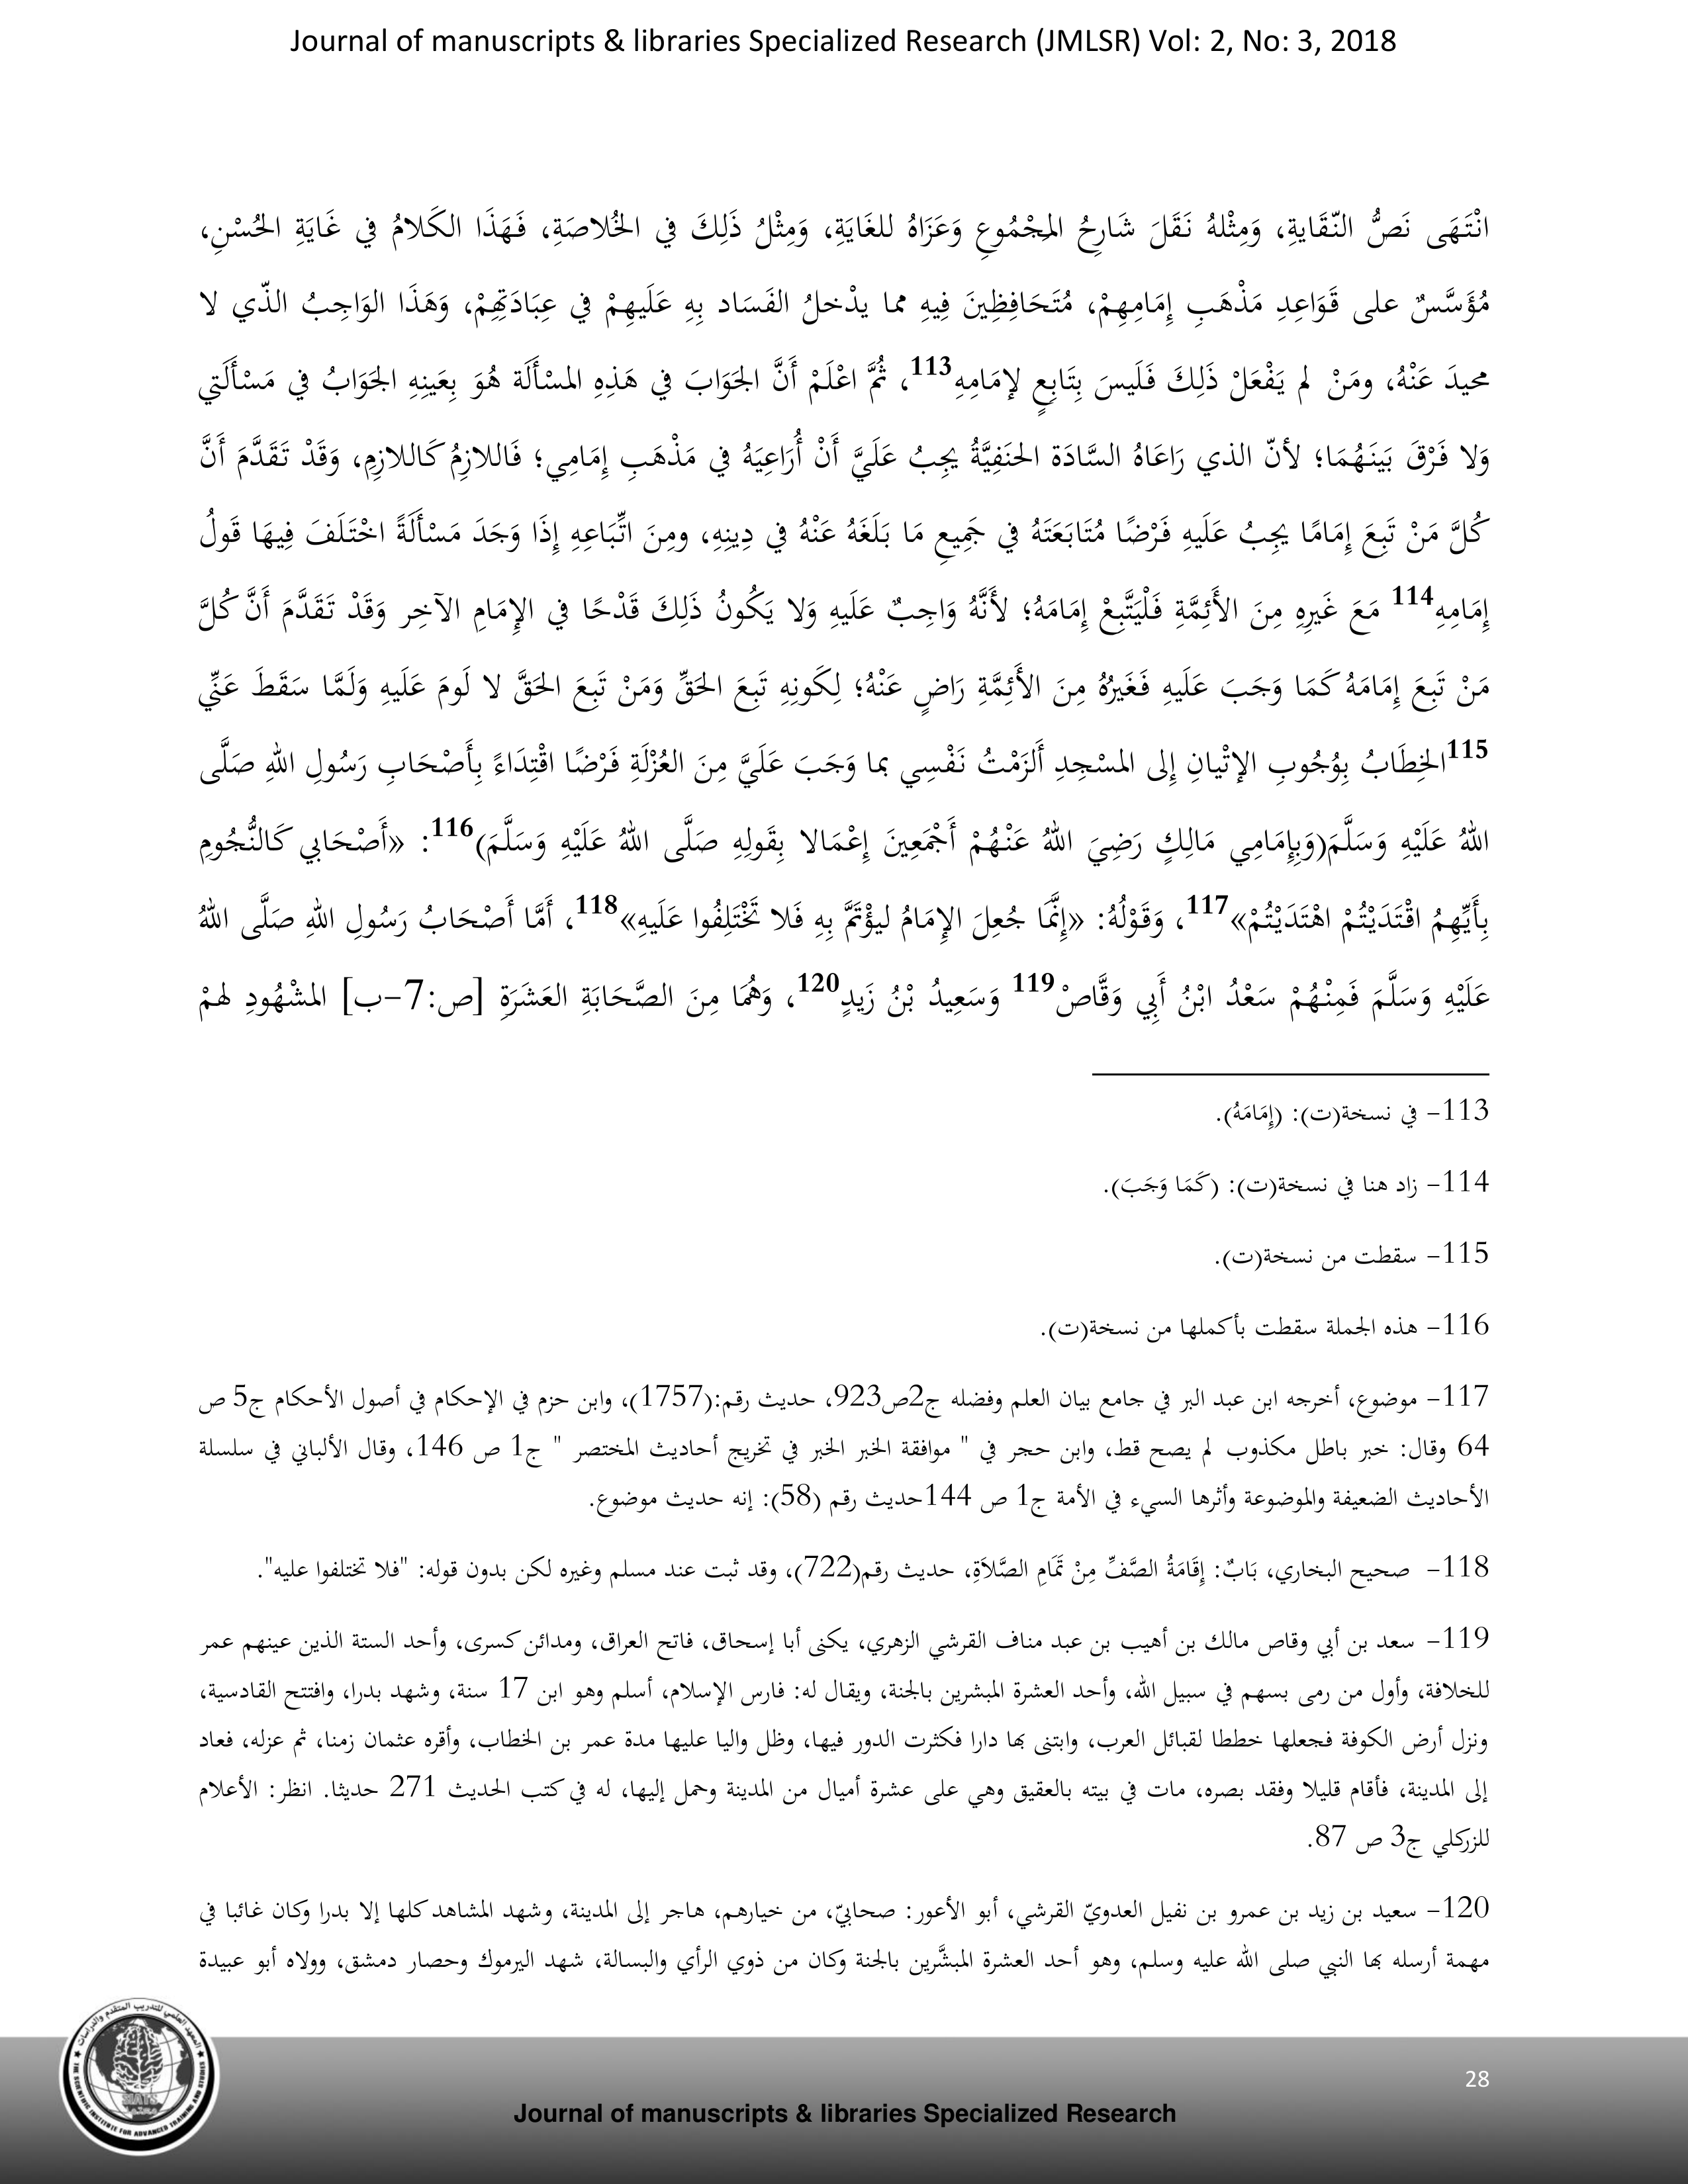 Journal of manuscripts & libraries Specialized Research (JMLSR) Vol: 2, No: 3, 2018
انْتَهَى نَصُّ النّقَايةِ، وَمِثْلهُ نَقَلَ شَارِحُ المِجْمُوعِ وَعَزَاهُ للغَايَةِ، وَمِثْلُ ذَلِكَ في الخُلاصَةِ، فَهَذَا الكَلامُ في غَايَةِ الحُسْنِ،
مُؤَسَّسٌ على قَوَاعِدِ مَذْهَبِ إِمَامِهِمْ، مُتَحَافِظِينَ فِيهِ مما يدْخلُ الفَسَاد بِهِ عَلَيهِمْ في عِبَادَتِهِمْ، وَهَذَا الوَاجِبُ الذّي لا
محيدَ عَنْهُ، ومَنْ لم يَفْعَلْ ذَلِكَ فَلَيسَ بِتَابِعٍ لإمَامِهِ113، ثُمَّ اعْلَمْ أَنَّ الجَوَابَ في هَذِهِ المسْأَلَة هُوَ بِعَينِهِ الجَوَابُ في مَسْأَلَتي
وَلا فَرْقَ بَينَهُمَا؛ لأنّ الذي رَاعَاهُ السَّادَة الحنَفِيَّةُ يجِبُ عَلَيَّ أَنْ أُرَاعِيَهُ في مَذْهَبِ إِمَامِي؛ فَاللازِمُ كَاللازِمِ، وَقَدْ تَقَدَّمَ أَنَّ
كُلَّ مَنْ تَبِعَ إِمَامًا يجِبُ عَلَيهِ فَرْضًا مُتَابَعَتَهُ في جَمِيعِ مَا بَلَغَهُ عَنْهُ في دِينِهِ، ومِنَ اتِّبَاعِهِ إِذَا وَجَدَ مَسْأَلَةً اخْتَلَفَ فِيهَا قَولُ
إِمَامِهِ114 مَعَ غَيرِهِ مِنَ الأَئِمَّةِ فَلْيَتَّبِعْ إِمَامَهُ؛ لأَنَّهُ وَاجِبٌ عَلَيهِ وَلا يَكُونُ ذَلِكَ قَدْحًا في الإِمَامِ الآخِر وَقَدْ تَقَدَّمَ أَنَّ كُلَّ
مَنْ تَبِعَ إِمَامَهُ كَمَا وَجَبَ عَلَيهِ فَغَيرُهُ مِنَ الأَئِمَّةِ رَاضٍ عَنْهُ؛ لِكَونِهِ تَبِعَ الحَقِّ وَمَنْ تَبِعَ الحَقَّ لا لَومَ عَلَيهِ وَلَمَّا سَقَطَ عَنِّي
115الخِطَابُ بِوُجُوبِ الإتْيانِ إِلى المسْجِدِ أَلزَمْتُ نَفْسِي بما وَجَبَ عَلَيَّ مِنَ العُزْلَةِ فَرْضًا اقْتِدَاءً بِأَصْحَابِ رَسُولِ اللهِ صَلَّى
اللهُ عَلَيْهِ وَسَلَّمَ(وَبِإِمَامِي مَالِكٍ رَضِيَ اللهُ عَنْهُمْ أَجْمَعِينَ إِعْمَالا بِقَولِهِ صَلَّى اللهُ عَلَيْهِ وَسَلَّمَ)116: «أَصْحَابي كَالنُّجُومِ
بِأَيِّهِمُ اقْتَدَيْتُمْ اهْتَدَيْتُمْ»117، وَقَوْلُهُ: «إِنَّمَا جُعِلَ الإِمَامُ ليؤْتَمَّ بِهِ فَلا تَخْتَلِفُوا عَلَيهِ»118، أَمَّا أَصْحَابُ رَسُولِ اللهِ صَلَّى اللهُ
عَلَيْهِ وَسَلَّمَ فَمِنْهُمْ سَعْدُ ابْنُ أَبِي وَقَّاصْ119 وَسَعِيدُ بْنُ زَيدٍ120، وَهُمَا مِنَ الصَّحَابَةِ العَشَرَةِ [ص:7-ب] المشْهُودِ لهمْ
113- في نسخة(ت): (إِمَامَهُ).
114- زاد هنا في نسخة(ت): (كَمَا وَجَبَ).
115- سقطت من نسخة(ت).
116- هذه الجملة سقطت بأكملها من نسخة(ت).
117- موضوع، أخرجه ابن عبد البر في جامع بيان العلم وفضله ج2ص923، حديث رقم:(1757)، وابن حزم في الإحكام في أصول الأحكام ج5 ص
64 وقال: خبر باطل مكذوب لم يصح قط، وابن حجر في " موافقة الخبر الخبر في تخريج أحاديث المختصر " ج1 ص 146، وقال الألباني في سلسلة
الأحاديث الضعيفة والموضوعة وأثرها السيء في الأمة ج1 ص 144حديث رقم (58): إنه حديث موضوع.
118- صحيح البخاري، بَابٌ: إِقَامَةُ الصَّفِّ مِنْ تَمَامِ الصَّلاَةِ، حديث رقم(722)، وقد ثبت عند مسلم وغيره لكن بدون قوله: "فلا تختلفوا عليه".
119- سعد بن أبي وقاص مالك بن أهيب بن عبد مناف القرشي الزهري، يكنى أبا إسحاق، فاتح العراق، ومدائن كسرى، وأحد الستة الذين عينهم عمر
للخلافة، وأول من رمى بسهم في سبيل الله، وأحد العشرة المبشرين بالجنة، ويقال له: فارس الإسلام، أسلم وهو ابن 17 سنة، وشهد بدرا، وافتتح القادسية،
ونزل أرض الكوفة فجعلها خططا لقبائل العرب، وابتنى بها دارا فكثرت الدور فيها، وظل واليا عليها مدة عمر بن الخطاب، وأقره عثمان زمنا، ثم عزله، فعاد
إلى المدينة، فأقام قليلا وفقد بصره، مات في بيته بالعقيق وهي على عشرة أميال من المدينة وحمل إليها، له في كتب الحديث 271 حديثا. انظر: الأعلام
للزركلي ج3 ص 87.
120- سعيد بن زيد بن عمرو بن نفيل العدويّ القرشي، أبو الأعور: صحابيّ، من خيارهم، هاجر إلى المدينة، وشهد المشاهد كلها إلا بدرا وكان غائبا في
مهمة أرسله بها النبي صلى الله عليه وسلم، وهو أحد العشرة المبشَّرين بالجنة وكان من ذوي الرأي والبسالة، شهد اليرموك وحصار دمشق، وولاه أبو عبيدة
28
Journal of manuscripts & libraries Specialized Research